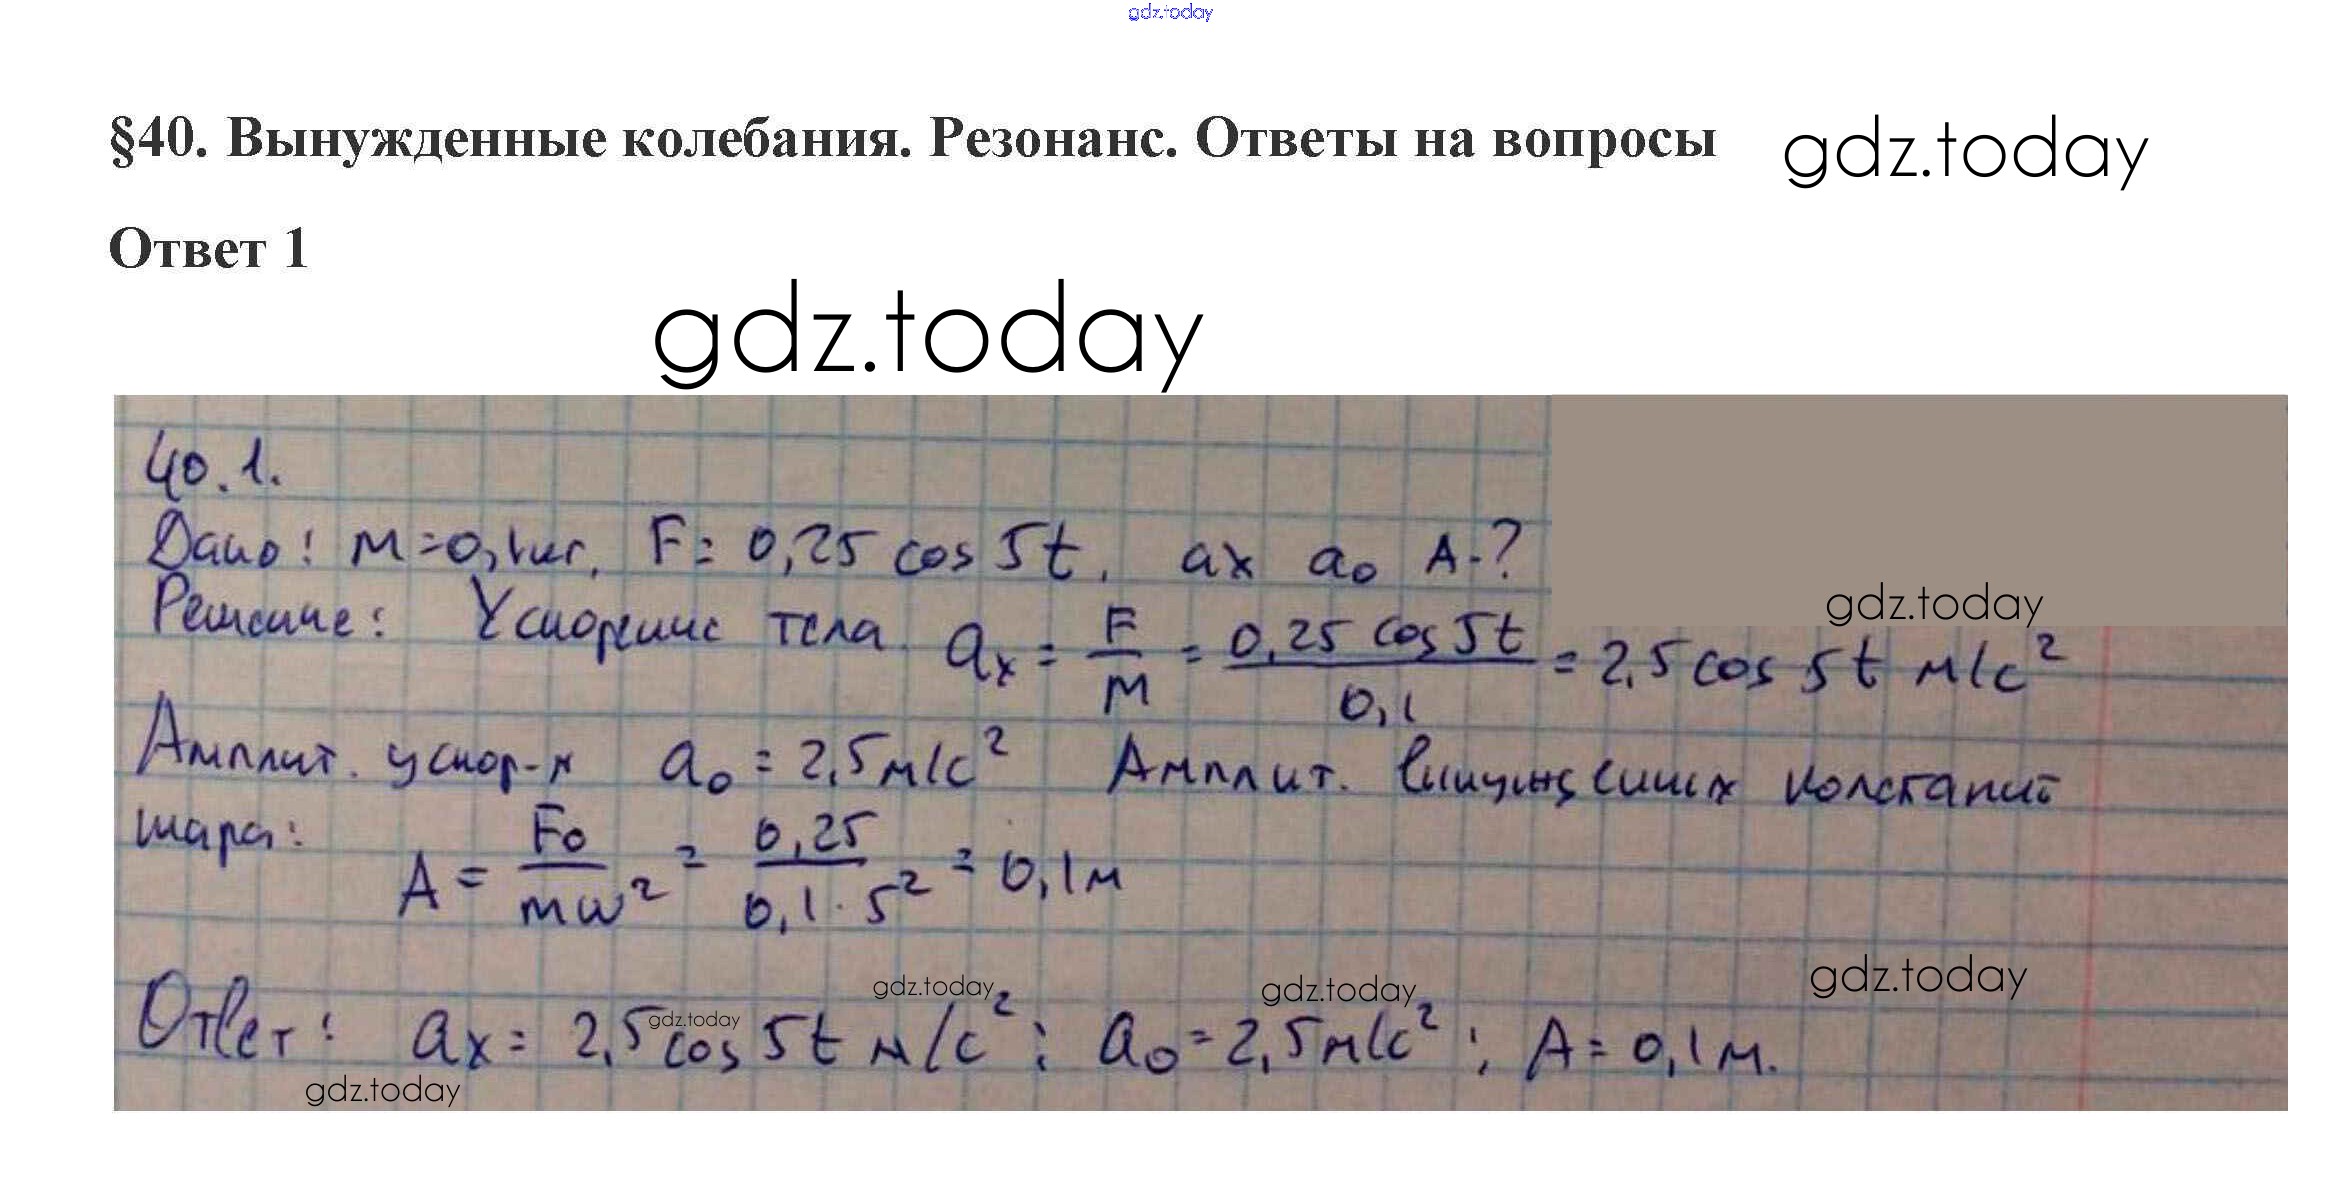 gdz.today
§40. Вынужденные колебания. Резонанс. Ответы на вопросы gdz.today
Ответ 1
gdz.today
40.1.
Дано: m=0,1кг, F= 0,25 cos 5t, ax a₀ A-?
gdz.today
Решение: Ускорение тела ax = F/m = 0,25 cos 5t / 0,1 = 2,5 cos 5t м/с²
Амплит. ускор-я a₀ = 2,5м/с² Амплит. вынужденных колебаний
шара:
A = F₀/mω² = 0,25/0,1·5² = 0,1м
gdz.today gdz.today gdz.today
gdz.today
Ответ: ax= 2,5 cos 5t м/с²; a₀=2,5м/с²; A=0,1м.
gdz.today